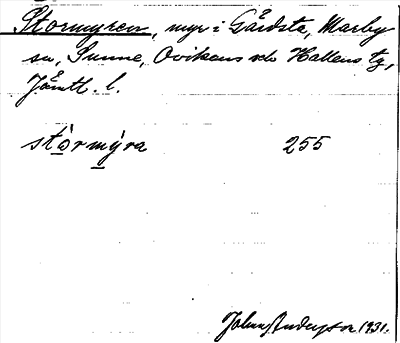 Stormyren, myr i Gårdsta, Marby
sn, Sunne, Ovikens och Hallens tg,
Jämtl. l.
stòrmýra 255
1931.